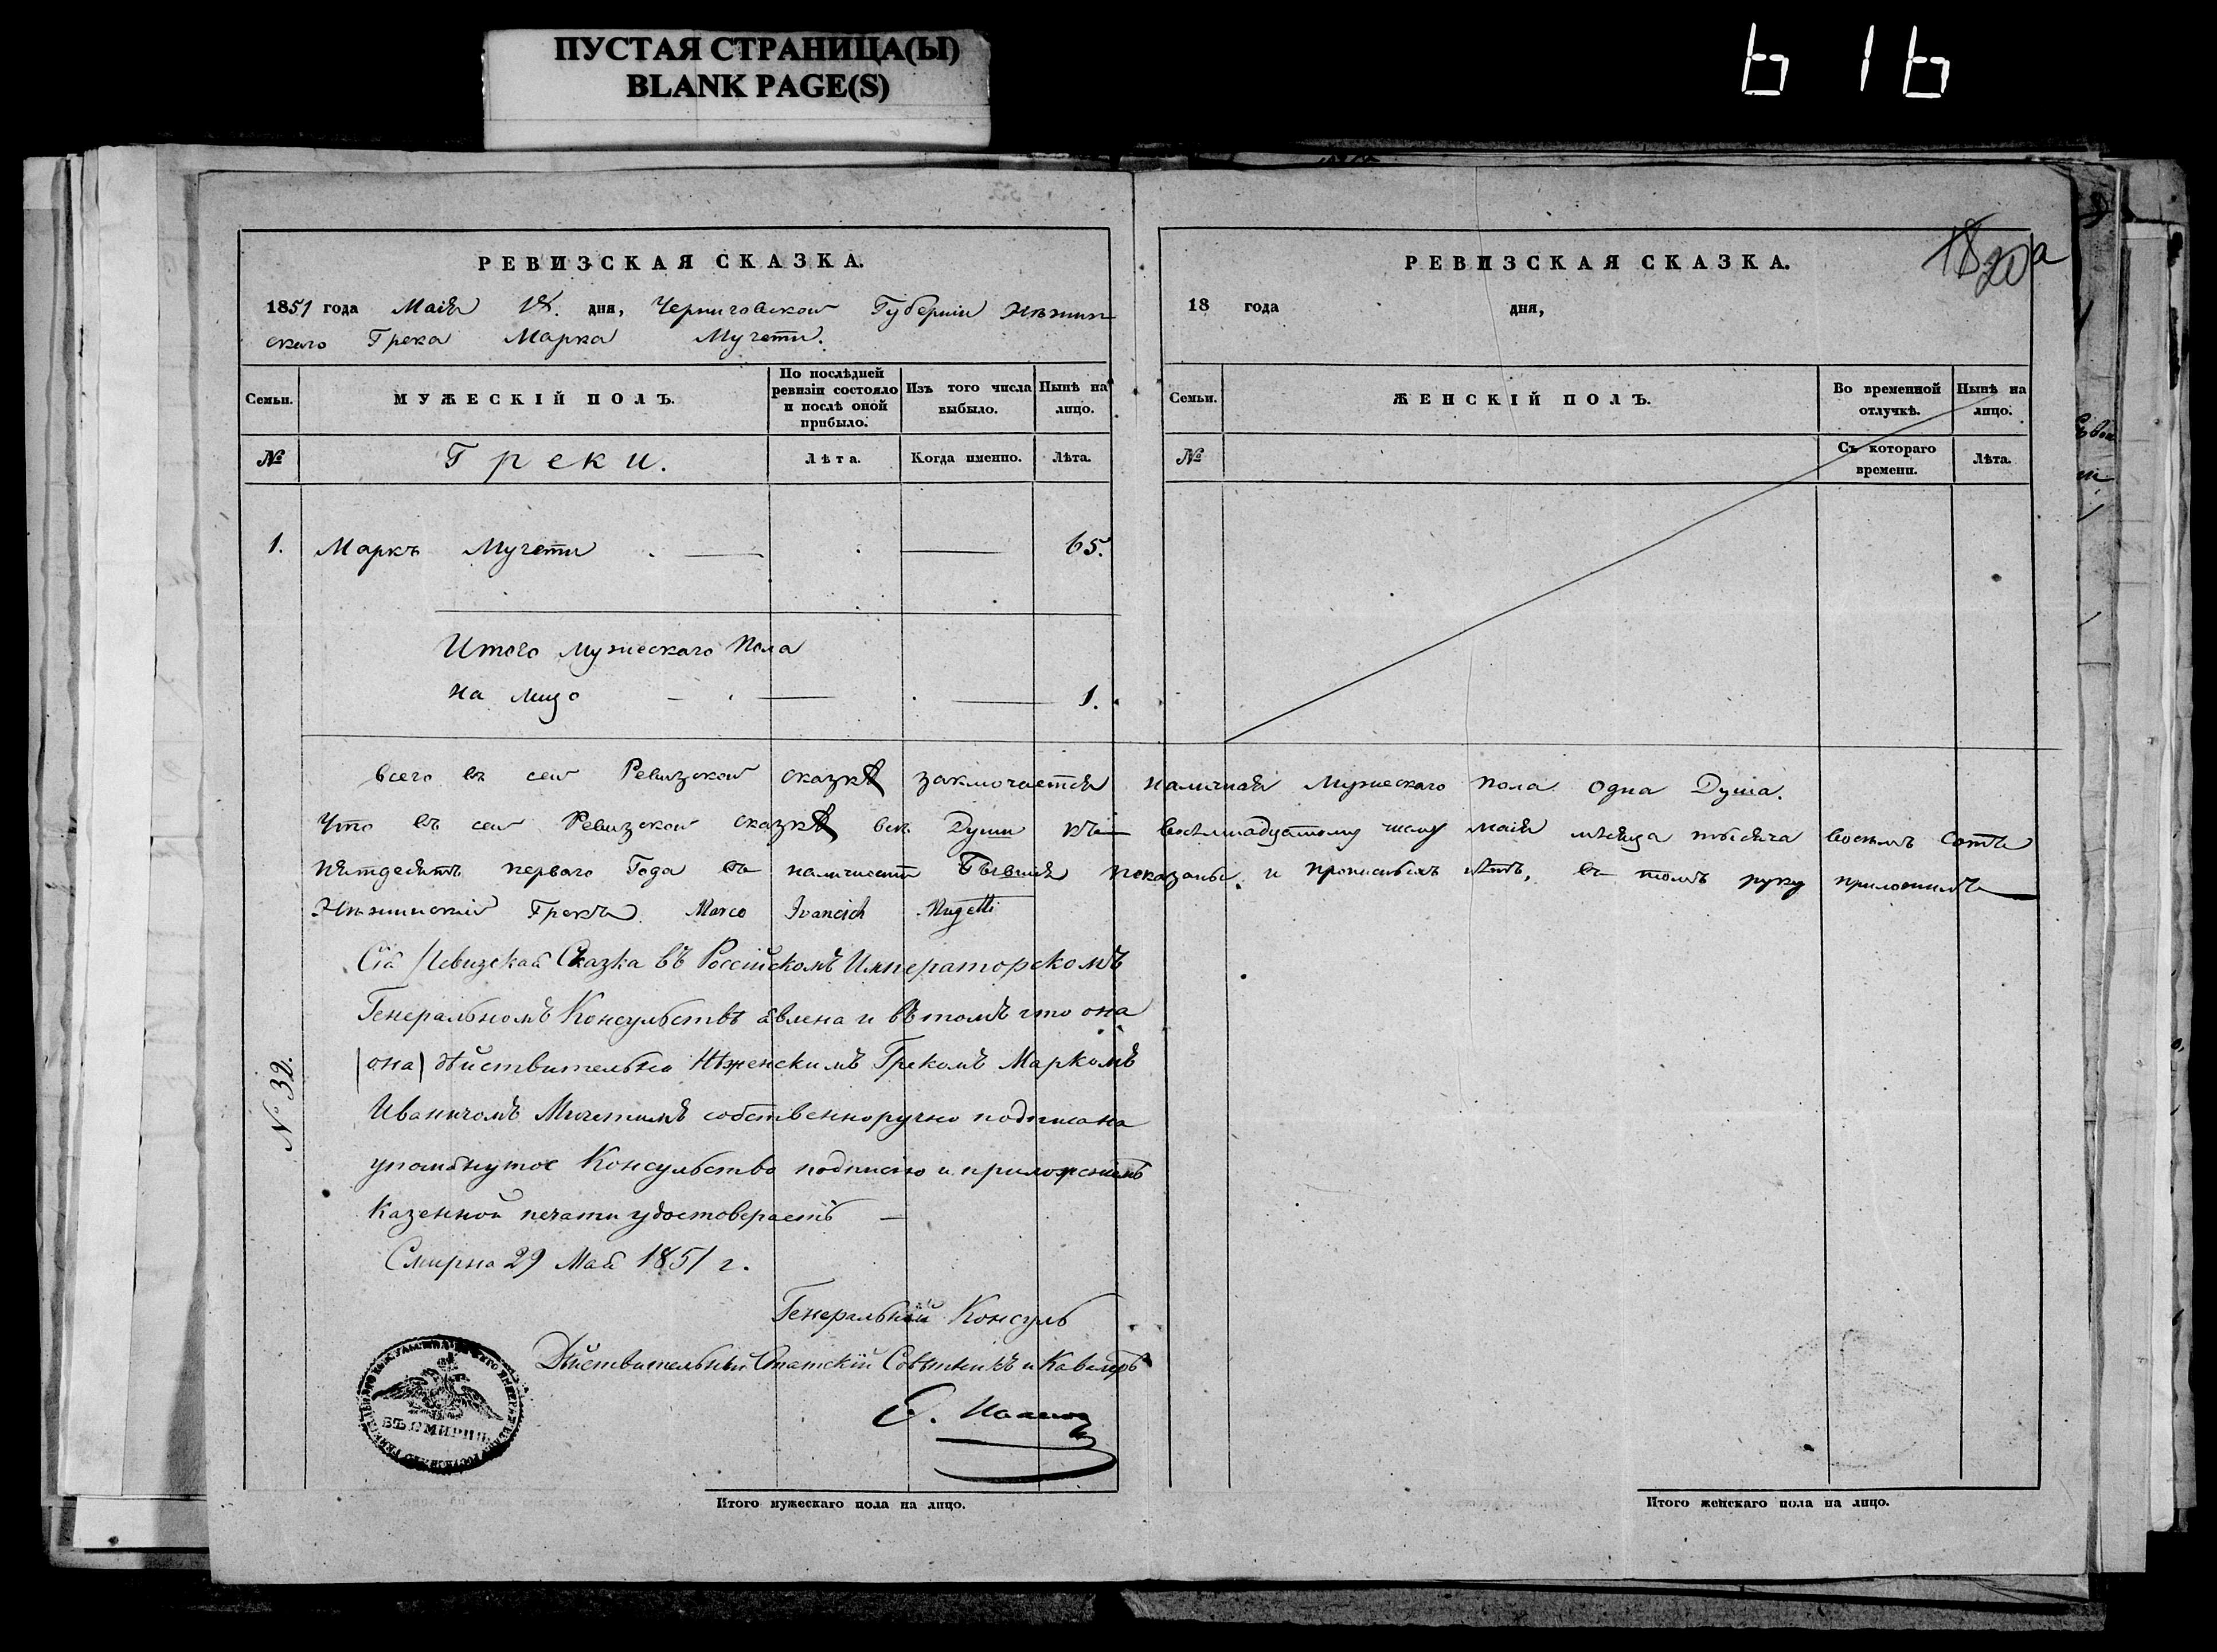 ПУСТАЯ СТРАНИЦА(Ы)
BLANK PAGE(S)
616
РЕВИЗСКАЯ СКАЗКА.
1851 года Маія 18. дня, Черниговской Губерніи Нѣжин
скаго Грека Марка Мучети.
Семьи.
МУЖЕСКІЙ ПОЛЪ.
По послѣдней ревизіи состояло и послѣ оной прибыло.
Изъ того числа выбыло.
Нынѣ на лицо.
№
Греки.
Лѣта.
Когда именно.
Лѣта.
1. Маркъ Мучети . — . — 65.
Итого мужескаго пола
на лицо — . — . — 1.
РЕВИЗСКАЯ СКАЗКА.
20
а
18 года дня,
Семьи.
ЖЕНСКІЙ ПОЛЪ.
Во временной отлучкѣ.
Нынѣ на лицо.
№
Съ котораго времени.
Лѣта.
Всего въ сей Ревизской сказкѣ заключается наличная Мужескаго пола одна Душа.
Что въ сей Ревизской сказкѣ всѣ Души къ восѣмнадцатому числу маія мѣсяца тысяча восѣмъ сотъ
пятдесятъ перваго Года въ наличности бывшія показаны. и прописныхъ нѣтъ, въ томъ руку приложилъ
Нѣжинскій Грекъ. Marco Ivancich Mugetti
Сія Ревизская Сказка въ Россійскомъ Императорскомъ
Генеральномъ Консульствѣ явлена и въ томъ что она
(она) дѣйствительно Нѣженскимъ Грекомъ Маркомъ
Иваничомъ Мучетимъ собственноручно подписана
упомянутое Консульство подписію и приложеніемъ
Казенной печати удостоверяетъ —
Смирна 29 Мая 1851 г.
Генеральный Консулъ
Дѣйствительный Статскій Совѣтникъ и Кавалеръ
№ 32.
ВЪ СМИРНѢ
Итого мужескаго пола на лицо.
Итого женскаго пола на лицо.